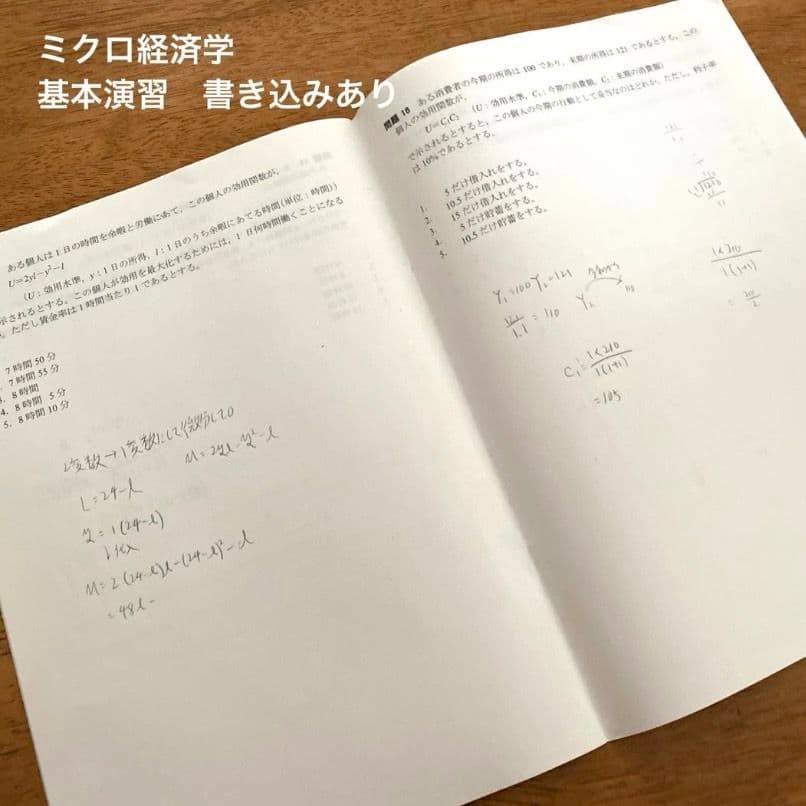 ミクロ経済学
基本演習 書き込みあり
ある個人は1日の時間を余暇と労働にあて、この個人の効用関数が、
U=2yl−y²−l
(U:効用水準、y:1日の所得、l:1日のうち余暇にあてる時間(単位:時間))
示されるとする。この個人が効用を最大化するためには、1日何時間働くことになる
。ただし賃金率は1時間当たり1であるとする。
7時間50分
. 7時間55分
3. 8時間
4. 8時間 5分
5. 8時間10分
2変数→1変数にして微分して0
u=2yl−y²−l
L=24−l
y=1(24−l)
↓代入
u=2(24−l)l−(24−l)²−l
=48l−
問題 18 ある消費者の今期の所得は100であり、来期の所得は121であるとする。この
個人の効用関数が、
U=C₁C₂ (U:効用水準、C₁:今期の消費額、C₂:来期の消費額)
で示されるとすると、この個人の今期の行動として妥当なのはどれか。ただし、利子率
は10%であるとする。
1. 5だけ借入れをする。
2. 10.5だけ借入れをする。
3. 15だけ借入れをする。
4. 5だけ貯蓄をする。
5. 10.5だけ貯蓄をする。
Y₁=100 Y₂=121
121/1.1=110 Y₂ 110
C₁=1×210/1(1+1)
=105
1×210/1(1+1)
=210/2